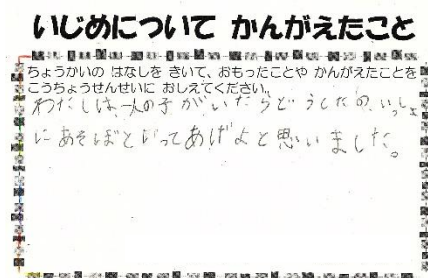 いじめについて かんがえたこと
ちょうかいの はなしを きいて、おもったことや かんがえたことを
こうちょうせんせいに おしえてください。
わたしは、一人の子がいたらどうしたの、いっしょ
にあそぼといってあげよと思いました。